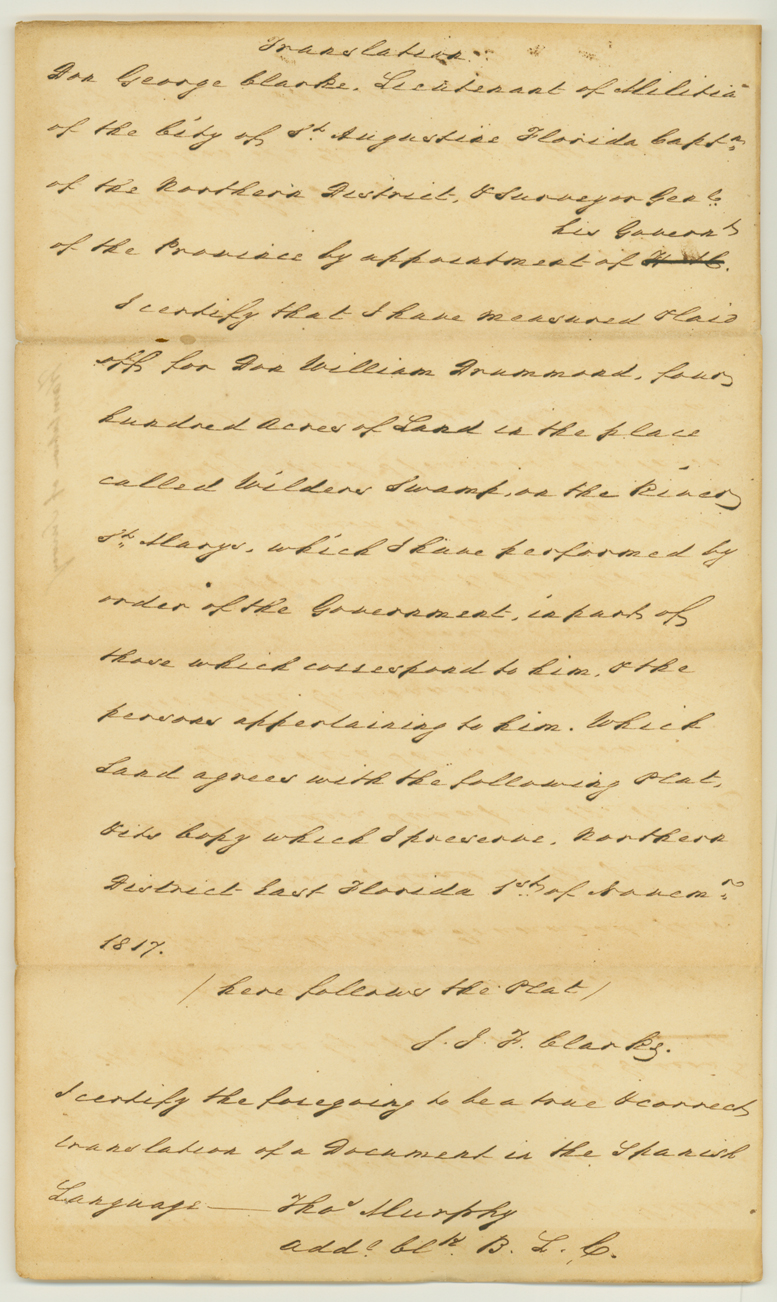 Translation.
Don George Clarke, Lieutenant of Militia
of the City of St. Augustine Florida Captn.
of the Northern District, & Surveyor Genl.
his Governt
of the Province by appointment of H. H. E.
I certify that I have measured & laid
off for Don William Drummond, four
hundred Acres of Land in the place
called Wilders Swamp, on the River
St. Marys, which I have performed by
order of the Government, in part of
those which correspond to him, & the
persons appertaining to him. Which
Land agrees with the following Plat,
& its Copy which I preserve. Northern
District East Florida 1st. of Novemro.
1817.
/ here follows the Plat /
J. J. F. Clarke.
I certify the foregoing to be a true & correct
translation of a Document in the Spanish
Language — Thos Murphy
addl. Clk. B. L. C.